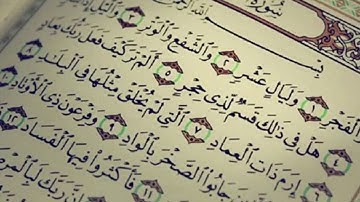 سُورَةُ
بِسْمِ اللَّهِ
الْفَجْرِ ١ وَلَيَالٍ عَشْرٍ ٢ وَالشَّفْعِ وَالْوَتْرِ ٣
هَلْ فِي ذَلِكَ قَسَمٌ لِذِي حِجْرٍ ٥ أَلَمْ تَرَ كَيْفَ فَعَلَ رَبُّكَ بِعَادٍ ٦
إِرَمَ ذَاتِ الْعِمَادِ ٧ الَّتِي لَمْ يُخْلَقْ مِثْلُهَا فِي الْبِلَادِ ٨
جَابُوا الصَّخْرَ بِالْوَادِ ٩ وَفِرْعَوْنَ ذِي الْأَوْتَادِ ١٠
١١ فَأَكْثَرُوا فِيهَا الْفَسَادَ ١٢
إِنَّ رَبَّكَ